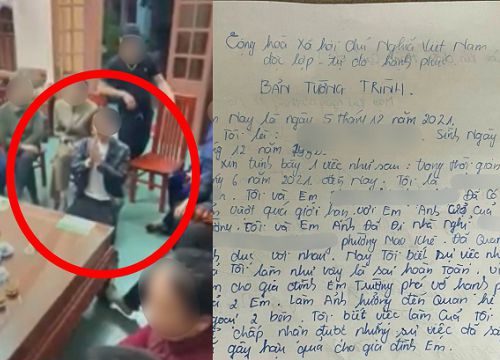 Cộng hoà Xã hội chủ Nghĩa Việt Nam
độc lập - tự do hạnh phúc
BẢN TƯỜNG TRÌNH.
Nay là ngày 5 tháng 12 năm 2021.
Tôi là: Sinh Ngày
12 năm
xin trình bày 1 việc như sau: trong thời gian
6 năm 2021. đến Nay. Tôi là
Tôi và Em Đã Có
vượt quá giới hạn với Em Anh của
Tôi và Em Anh Đã Đi Nhà Nghỉ
phường Mạo Khê. Đã Quan
dục với nhau. Nay Tôi biết sự việc
Tôi làm như vậy là sai hoàn Toàn.
cho gia đình Em Trường phá vỡ hạnh
2 Em. Làm Ảnh hưởng đến Quan hệ
2 bên. Tôi biết việc làm của Tôi
chấp nhận được nhưng sự việc đã
gây hậu quả cho gia đình Em.